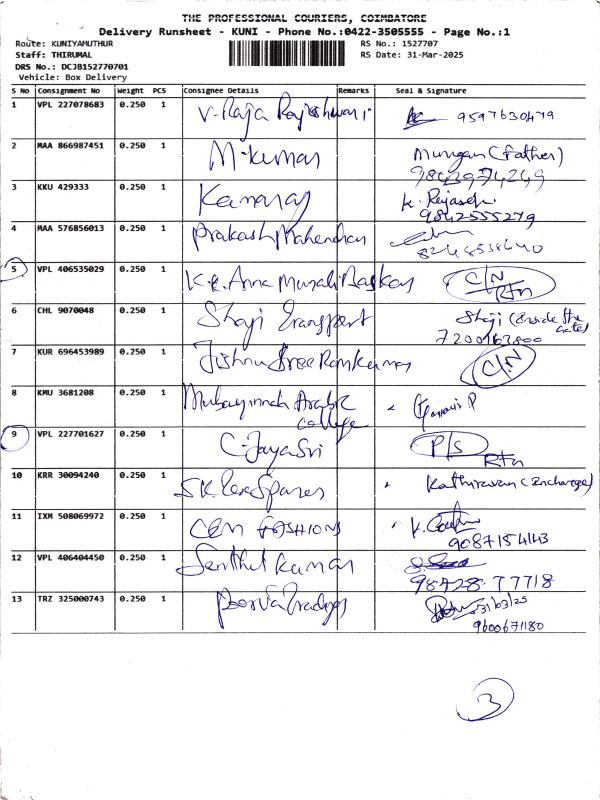 THE PROFESSIONAL COURIERS, COIMBATORE
Delivery Runsheet - KUNI - Phone No.:0422-3505555 - Page No.:1
Route: KUNIYAMUTHUR RS No.: 1527707
Staff: THIRUMAL RS Date: 31-Mar-2025
DRS No.: DCJB152770701
Vehicle: Box Delivery
S No Consignment No Weight PCS Consignee Details Remarks Seal & Signature
1 VPL 227078683 0.250 1 V. Raja Rajeshwari 9597630479
2 MAA 866987451 0.250 1 M. Kumar Murugan (Father)
9843974249
3 KKU 429333 0.250 1 Kamaraj K. Rejasek
9842555279
4 MAA 576856013 0.250 1 Prakash Mahendran
8248538640
5 VPL 406535029 0.250 1 Anna Murali Baskar C/N
Rtn
6 CHL 9070048 0.250 1 Shaji Transport Shaji (Inside the Gate)
7200163800
7 KUR 696453989 0.250 1 Jishnu Sree Ramkumar C/N
8 KMU 3681208 0.250 1 Arabic
College
9 VPL 227701627 0.250 1 C. JayaSri P/S
Rtn
10 KRR 30094240 0.250 1 SK Spares Kathiravan (Incharge)
11 IXM 508069972 0.250 1 CEM FASHIONS
9087154143
12 VPL 406404450 0.250 1 Senthil Kumar
98428 77718
13 TRZ 325000743 0.250 1 Poorva Tradings 31/03/25
9600671180
3